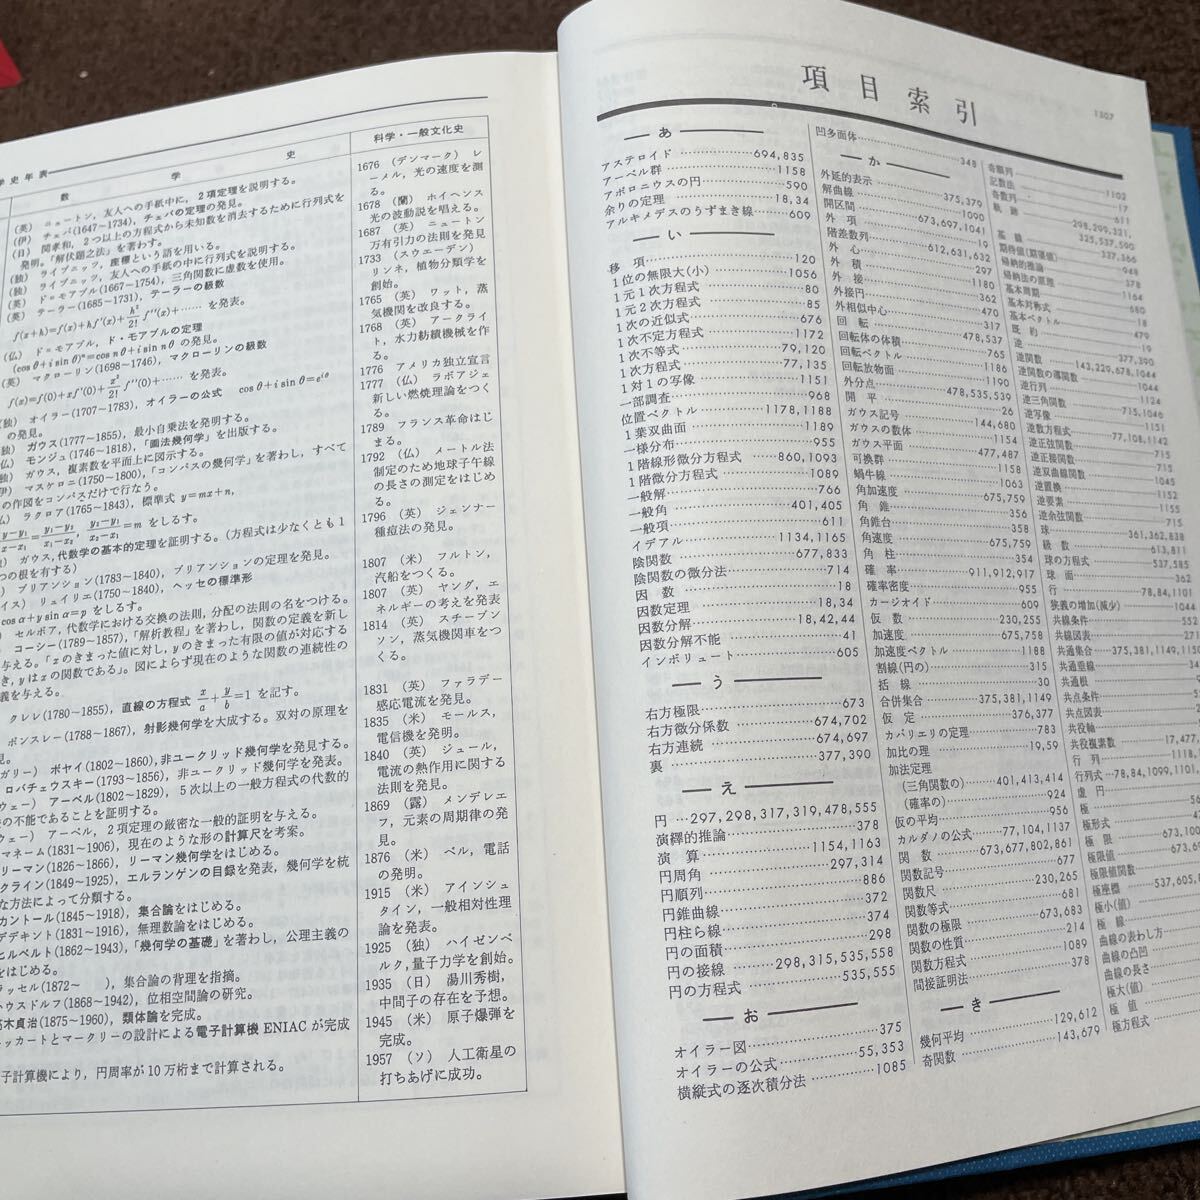 学史年表
数 学 史
科学・一般文化史
(英) ニュートン，友人への手紙中に，2項定理を説明する。
(伊) チェバ(1647~1734)，チェバの定理の発見。
(日) 関孝和，2つ以上の方程式から未知数を消去するために行列式を
発明。「解伏題之法」を著わす。
(独) ライプニッツ，座標という語を用いる。
(独) ライプニッツ，友人への手紙の中に行列式を説明する。
(英) ド=モアブル(1667~1754)，三角関数に虚数を使用。
(英) テーラー(1685~1731)，テーラーの級数
f(x+h)=f(x)+hf′(x)+h²/2! f″(x)+…… を発表。
(仏) ド=モアブル，ド・モアブルの定理
(cosθ+i sinθ)ⁿ=cos nθ+i sin nθ の発見。
(英) マクローリン(1698~1746)，マクローリンの級数
f(x)=f(0)+xf′(0)+x²/2! f″(0)+…… を発表。
(独) オイラー(1707~1783)，オイラーの公式 cosθ+i sinθ=e^{iθ}
の発見。
(独) ガウス(1777~1855)，最小自乗法を発明する。
(仏) モンジュ(1746~1818)，「画法幾何学」を出版する。
(独) ガウス，複素数を平面上に図示する。
(伊) マスケロニ(1750~1800)，「コンパスの幾何学」を著わし，すべて
の作図をコンパスだけで行なう。
(仏) ラクロア(1765~1843)，標準式 y=mx+n，
をしるす。
ガウス，代数学の基本的定理を証明する。(方程式は少なくとも1
つの根を有する)
ブリアンション(1783~1840)，ブリアンションの定理を発見。
(スイス) リュイリエ(1750~1840)，ヘッセの標準形
x cosα+y sinα=p をしるす。
セルボア，代数学における交換の法則，分配の法則の名をつける。
コーシー(1789~1857)，「解析教程」を著わし，関数の定義を新し
与える。「xのきまった値に対し，yのきまった有限の値が対応する
き，yはxの関数である」。図によらず現在のような関数の連続性の
義を与える。
クレレ(1780~1855)，直線の方程式 x/a+y/b=1 を記す。
ポンスレー(1788~1867)，射影幾何学を大成する。双対の原理を
見。
ガリー) ボヤイ(1802~1860)，非ユークリッド幾何学を発見する。
ロバチェウスキー(1793~1856)，非ユークリッド幾何学を発表。
ウェー) アーベル(1802~1829)，5次以上の一般方程式の代数的
の不能であることを証明する。
ウェー) アーベル，2項定理の厳密な一般的証明を与える。
マネーム(1831~1906)，現在のような形の計算尺を考案。
リーマン(1826~1866)，リーマン幾何学をはじめる。
クライン(1849~1925)，エルランゲンの目録を発表，幾何学を統
な方法によって分類する。
カントール(1845~1918)，集合論をはじめる。
デデキント(1831~1916)，無理数論をはじめる。
ヒルベルト(1862~1943)，「幾何学の基礎」を著わし，公理主義の
をはじめる。
ラッセル(1872~ )，集合論の背理を指摘。
ハウスドルフ(1868~1942)，位相空間論の研究。
高木貞治(1875~1960)，類体論を完成。
ッカートとマークリーの設計による電子計算機 ENIAC が完成
子計算機により，円周率が10万桁まで計算される。
1676 (デンマーク) レ
ーメル，光の速度を測
る。
1678 (蘭) ホイヘンス
光の波動説を唱える。
1687 (英) ニュートン
万有引力の法則を発見
1733 (スウェーデン)
リンネ，植物分類学を
創始。
1765 (英) ワット，蒸
気機関を改良する。
1768 (英) アークライ
ト，水力紡績機械を作
る。
1776 アメリカ独立宣言
1777 (仏) ラボアジェ
新しい燃焼理論をつく
る。
1789 フランス革命はじ
まる。
1792 (仏) メートル法
制定のため地球子午線
の長さの測定をはじめ
る。
1796 (英) ジェンナー
種痘法の発見。
1807 (米) フルトン，
汽船をつくる。
1807 (英) ヤング，エ
ネルギーの考えを発表
1814 (英) スチーブン
ソン，蒸気機関車をつ
くる。
1831 (英) ファラデー
感応電流を発見。
1835 (米) モールス，
電信機を発明。
1840 (英) ジュール，
電流の熱作用に関する
法則を発見。
1869 (露) メンデレエ
フ，元素の周期律の発
見。
1876 (米) ベル，電話
の発明。
1915 (米) アインシュ
タイン，一般相対性理
論を発表。
1925 (独) ハイゼンベ
ルク，量子力学を創始。
1935 (日) 湯川秀樹，
中間子の存在を予想。
1945 (米) 原子爆弾を
完成。
1957 (ソ) 人工衛星の
打ちあげに成功。
項目索引
1307
あ
アステロイド……694,835
アーベル群……1158
アポロニウスの円……590
余りの定理……18,34
アルキメデスのうずまき線……609
い
移項……120
1位の無限大(小)……1056
1元1次方程式……80
1元2次方程式……85
1次の近似式……676
1次不定方程式……1172
1次不等式……79,120
1次方程式……77,135
1対1の写像……1151
一部調査……968
位置ベクトル……1178,1188
1葉双曲面……1189
一様分布……955
1階線形微分方程式……860,1093
1階微分方程式……1089
一般解……766
一般角……401,405
一般項……611
イデアル……1134,1165
陰関数……677,833
陰関数の微分法……714
因数……18
因数定理……18,34
因数分解……18,42,44
因数分解不能……41
インボリュート……605
う
右方極限……673
右方微分係数……674,702
右方連続……674,697
裏……377,390
え
円……297,298,317,319,478,555
演繹的推論……378
演算……1154,1163
円周角……297,314
円順列……886
円錐曲線……372
円柱ら線……374
円の面積……298
円の接線……298,315,535,558
円の方程式……535,555
お
オイラー図……375
オイラーの公式……55,353
横縦式の逐次積分法……1085
凹多面体……348
か
外延的表示……375,379
解曲線……1090
開区間……673,697,1041
外項……19
階差数列……612,631,632
外心……297
外積……1180
外接円……362
外相似中心……470
回転……317
回転体の体積……478,537
回転ベクトル……765
回転放物面……1186
外分点……1190
開平……478,535,539
ガウス記号……26
ガウスの数体……144,680
ガウス平面……1154
可換群……477,487
蝸牛線……1158
角加速度……1063
角錐……675,759
角錐台……356
角速度……358
角柱……675,759
確率……354
確率密度……911,912,917
カージオイド……955
仮数……609
加速度……230,255
加速度ベクトル……675,758
割線(円の)……1188
括線……315
合併集合……30
仮定……375,381,1149
カバリエリの定理……376,377
加比の理……783
加法定理……19,59
(三角関数の)……401,413,414
(確率の)……924
仮の平均……956
カルダノの公式……77,104,1137
関数……673,677,802,861
関数記号……677
関数尺……230,265
関数等式……681
関数の極限……673,683
関数の性質……214
関数方程式……1089
間接証明法……378
き
幾何平均……129,612
奇関数……143,679
奇順列
記数法……1102
奇数列……17
軌跡……611
基線……298,299,321,
325,537,590
期待値(期望値)……337,366
帰納的推論……948
帰納法の原理……378
基本周期……1164
基本対称式……680
基本ベクトル……18
既約……479
逆……19
逆関数……377,390
逆関数の導関数……143,220,678,1044
逆行列……1044
逆三角関数……1124
逆写像……715,1046
逆数方程式……1151
逆正弦関数……77,108,1142
逆正接関数……715
逆双曲線関数……715
逆置換……1045
逆要素……1152
逆余弦関数……1155
球……715
級数……361,362,838
球の方程式……613,811
球面……537,585
行……362
狭義の増加(減少)……78,84,1101
共線条件……1044
共線図表……552
共通集合……375,381,1149,1150
共通垂線
共通根
共点条件
共点図表
共役軸
共役複素数……17,477
行列
行列式……78,84,1099,1101
虚円
極
極形式
極限……673
極限値
極限値関数
極座標……537,605
極小(値)
極線
曲線の表わし方
曲線の凸凹
曲線の長さ
極大(値)
極値
極方程式